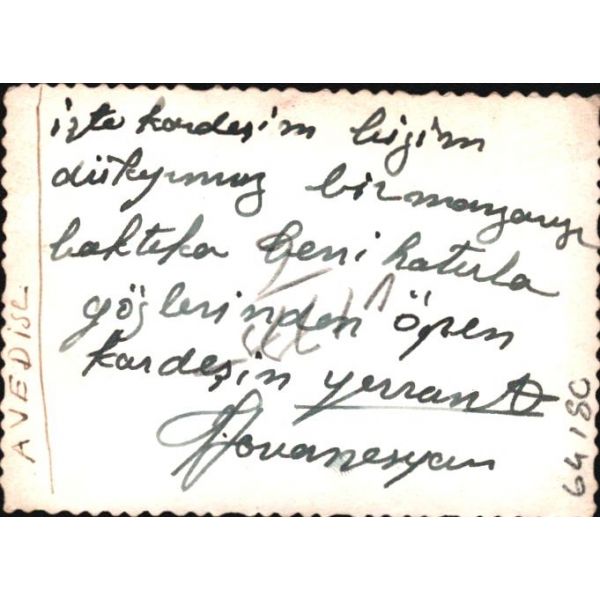 işte kardeşim bizim
dükyımız bir manzarayı
baktıka beni hatırla
gözlerinden öpen
kardeşin yerrant
Hovanesyan
AVEDİSE
64180